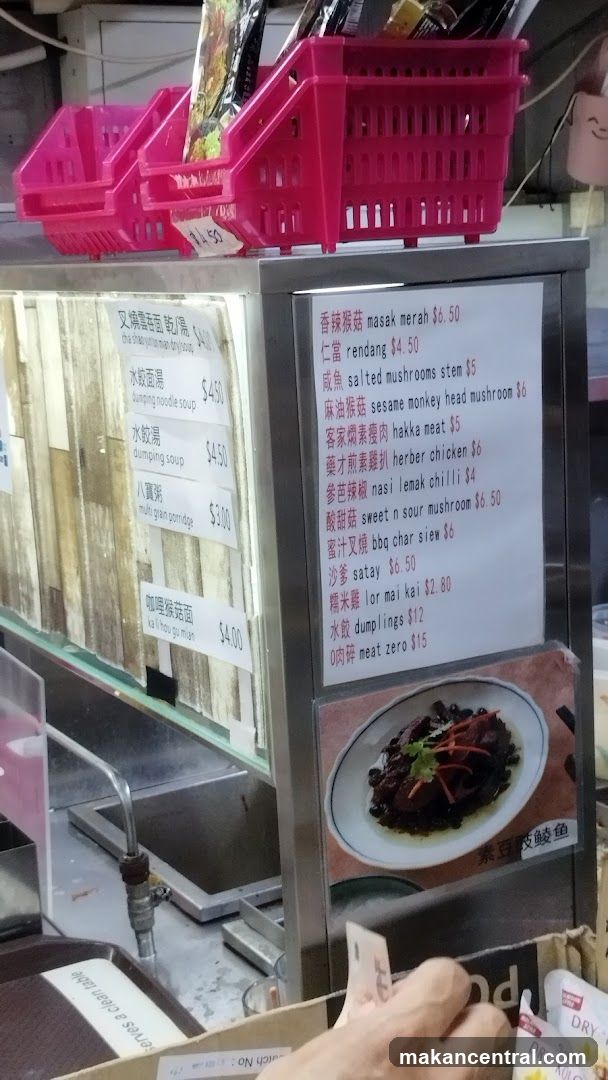 $4.50
叉燒雲吞面 乾/湯 $4.00
水餃面湯
dumping noodle soup $4.50
水餃湯
dumping soup $4.50
八寶粥
multi grain porridge $3.00
咖哩猴菇面
ka li hou gu mian $4.00
香辣猴菇 masak merah $6.50
仁當 rendang $4.50
咸魚 salted mushrooms stem $5
麻油猴菇 sesame monkey head mushroom $6
客家燜素瘦肉 hakka meat $5
藥才煎素雞扒 herber chicken $6
參芭辣椒 nasi lemak chilli $4
酸甜菇 sweet n sour mushroom $6.50
蜜汁叉燒 bbq char siew $6
沙爹 satay $6.50
糯米雞 lor mai kai $2.80
水餃 dumplings $12
0肉碎 meat zero $15
素豆豉鲮鱼
serves a clean table
DRY
makancentral.com